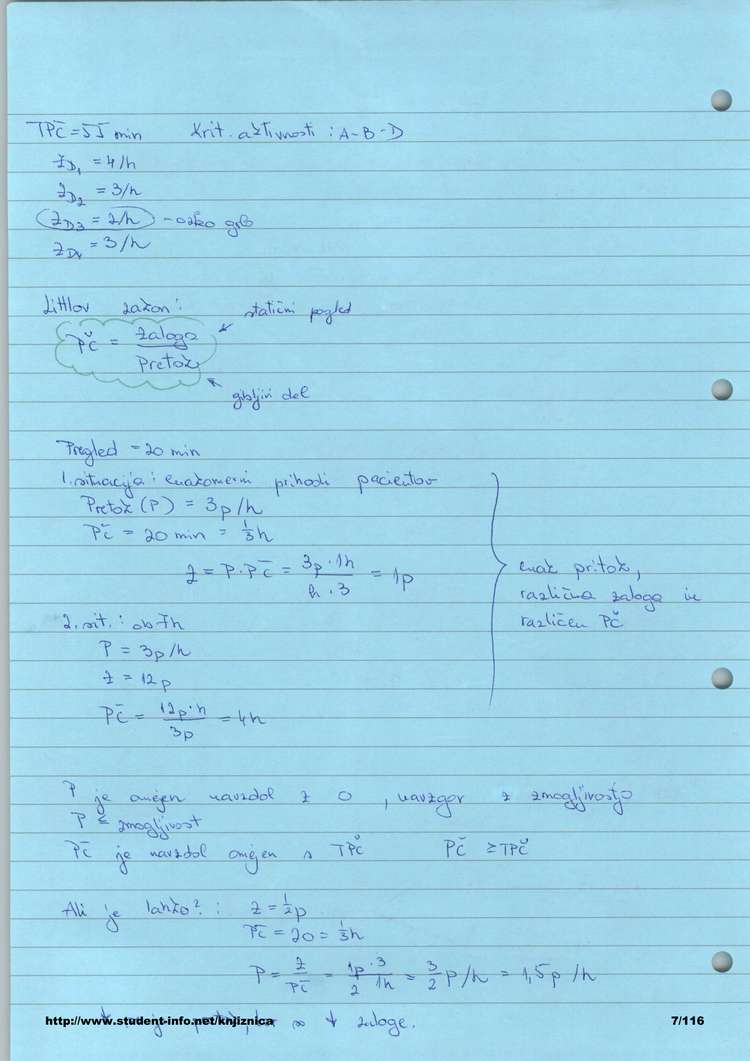 TPČ = 55 min Krit. aktivnosti : A-B-D
ZD1 = 4/h
ZD2 = 3/h
ZD3 = 2/h - ozko grlo
ZD4 = 3/h
Littlov zakon :
statični pogled
PČ = zaloga / pretok
gibljivi del
Pregled = 20 min
1. situacija : enakomerni prihodi pacientov
Pretok (P) = 3p/h
PČ = 20 min = 1/3 h
Z = P · PČ = 3p · 1h / h · 3 = 1p
enak pritok,
različna zaloga in
različen PČ
2. sit. : ob 7h
P = 3p/h
Z = 12p
PČ = 12p · h / 3p = 4h
P je omejen navzdol z 0 , navzgor z zmogljivostjo
P ≤ zmogljivost
PČ je navzdol omejen s TPČ PČ ≥ TPČ
Ali je lahko? : Z = 1/2 p
PČ = 20 = 1/3 h
P = Z / PČ = 1p · 3 / 2 1h = 3/2 p/h = 1,5p/h
∞ zaloge.
http://www.student-info.net/knjiznica 7/116